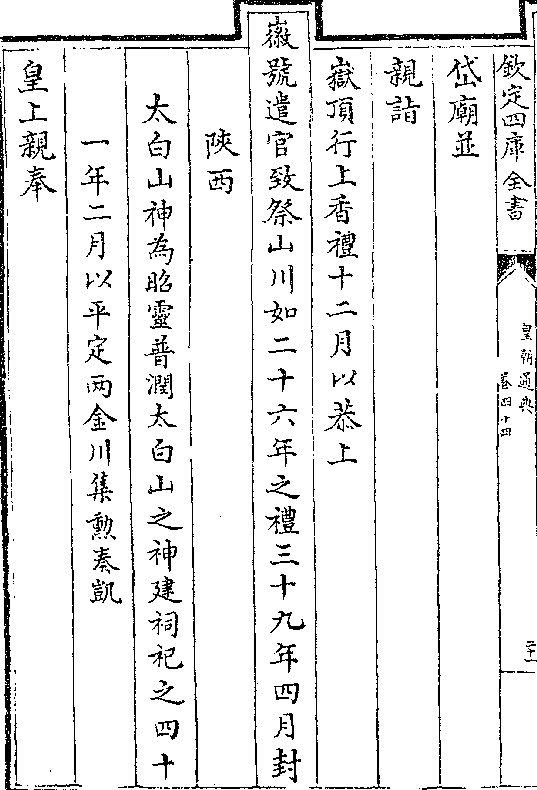 欽定四庫全書
皇朝通典
卷四十四
岱廟並
親詣
嶽頂行上香禮十二月以恭上
徽號遣官致祭山川如二十六年之禮三十九年四月封
陝西
太白山神為昭靈普潤太白山之神建祠祀之四十
一年二月以平定兩金川集勲奏凱
皇上親奉